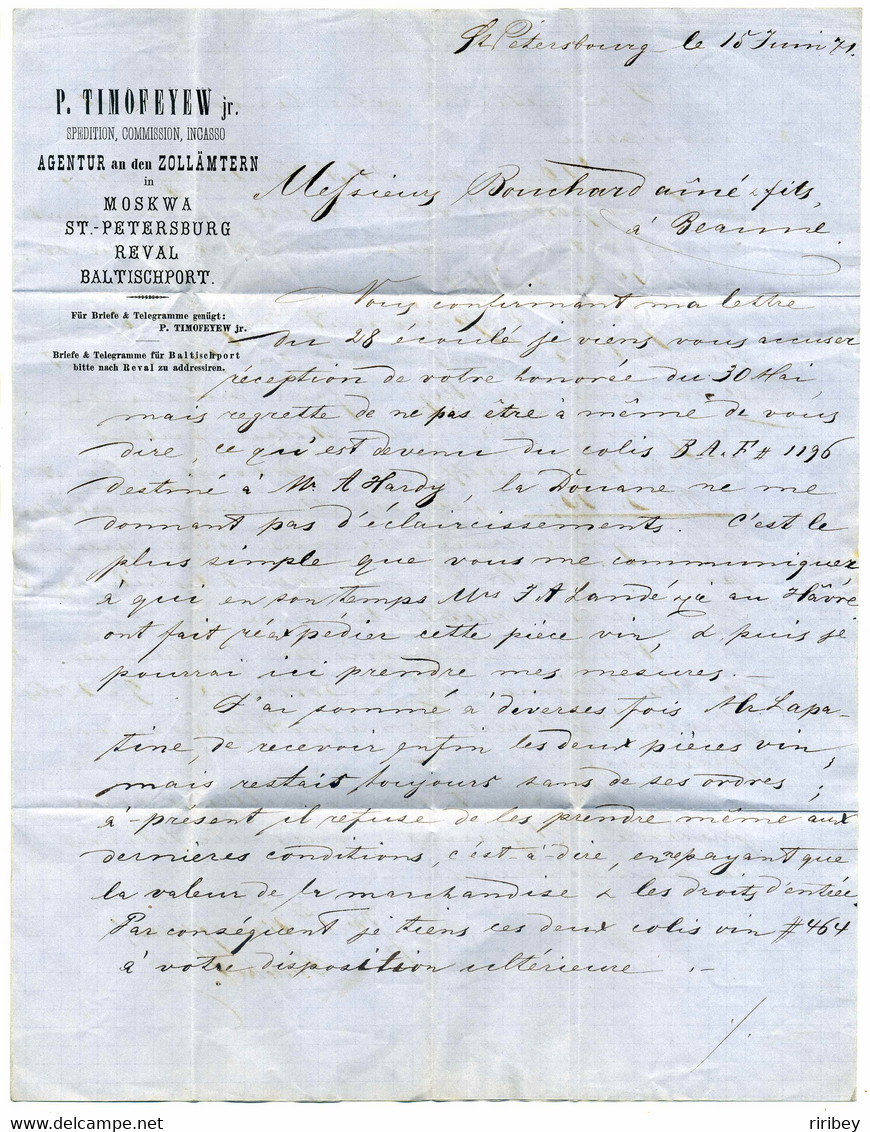 St Pétersbourg le 15 Juin 71.
P. TIMOFEYEW jr.
SPEDITION, COMMISSION, INCASSO
AGENTUR an den ZOLLÄMTERN
in
MOSKWA
ST.-PETERSBURG
REVAL
BALTISCHPORT.
Für Briefe & Telegramme genügt:
P. TIMOFEYEW jr.
Briefe & Telegramme für Baltischport
bitte nach Reval zu addressiren.
Messieurs Bouchard aîné & fils,
à Beaune.
Vous confirmant ma lettre
du 28 écoulé je viens vous accuser
réception de votre honorée du 30 Mai
mais regrette de ne pas être à même de vous
dire, ce qu'est devenu du colis B A. F # 1196
destiné à Mr. A Hardy, la Douane ne me
donnant pas d'éclaircissements. C'est le
plus simple que vous me communiquez
à qui en son temps Mrs J A Landé & Cie au Hâvre
ont fait réexpédier cette pièce vin, & puis je
pourrai ici prendre mes mésures. —
J'ai sommé à diverses fois Mr Lapa-
tine, de recevoir enfin les deux pièces vin,
mais restais toujours sans de ses ordres;
à-présent il refuse de les prendre même aux
dernières conditions, c'est-à-dire, en ne payant que
la valeur de la marchandise & les droits d'entrée.
Par conséquent je tiens ces deux colis vin #464
à votre disposition ultérieure. —
./.
riribey